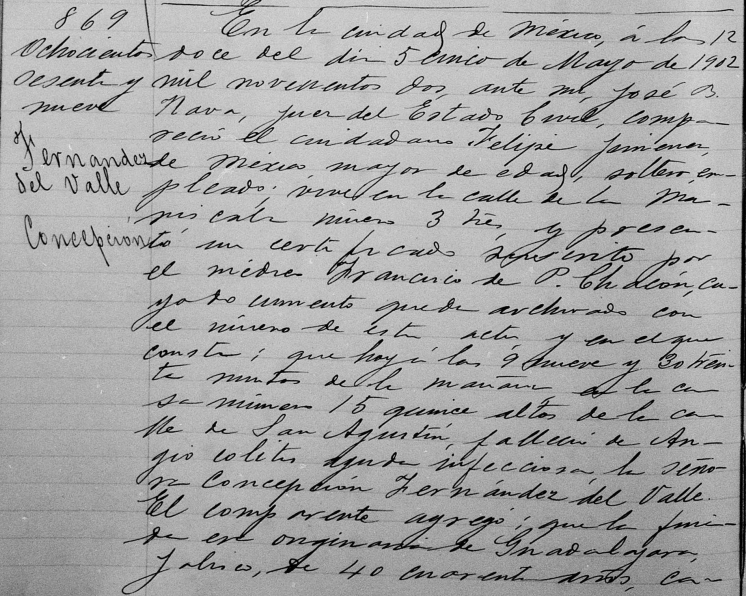 869
Ochocientos
sesenta y
nueve
Fernandez
del Valle
Concepción
En la ciudad de México, á las 12
doce del dia 5 cinco de Mayo de 1902
mil novecientos dos, ante mi, José B.
Nava, juez del Estado Civil, compa-
reció el ciudadano Felipe Jimenez,
de México mayor de edad, soltero, em-
pleado; vive en la calle de la Ma-
riscala número 3 tres, y presen-
tó un certificado suscrito por
el médico Francisco de P. Chacón, cu-
yo documento queda archivado con
el número de esta acta y en el que
consta; que hoy á las 9 nueve y 30 trein-
ta minutos de la mañana, en la ca-
sa número 15 quince altos de la ca-
lle de San Agustín, falleció de An-
gio colitis aguda infecciosa, la seño-
ra Concepción Fernández del Valle.
El comparente agregó; que la fini-
da era originaria de Guadalajara,
Jalisco, de 40 cuarenta años, ca-